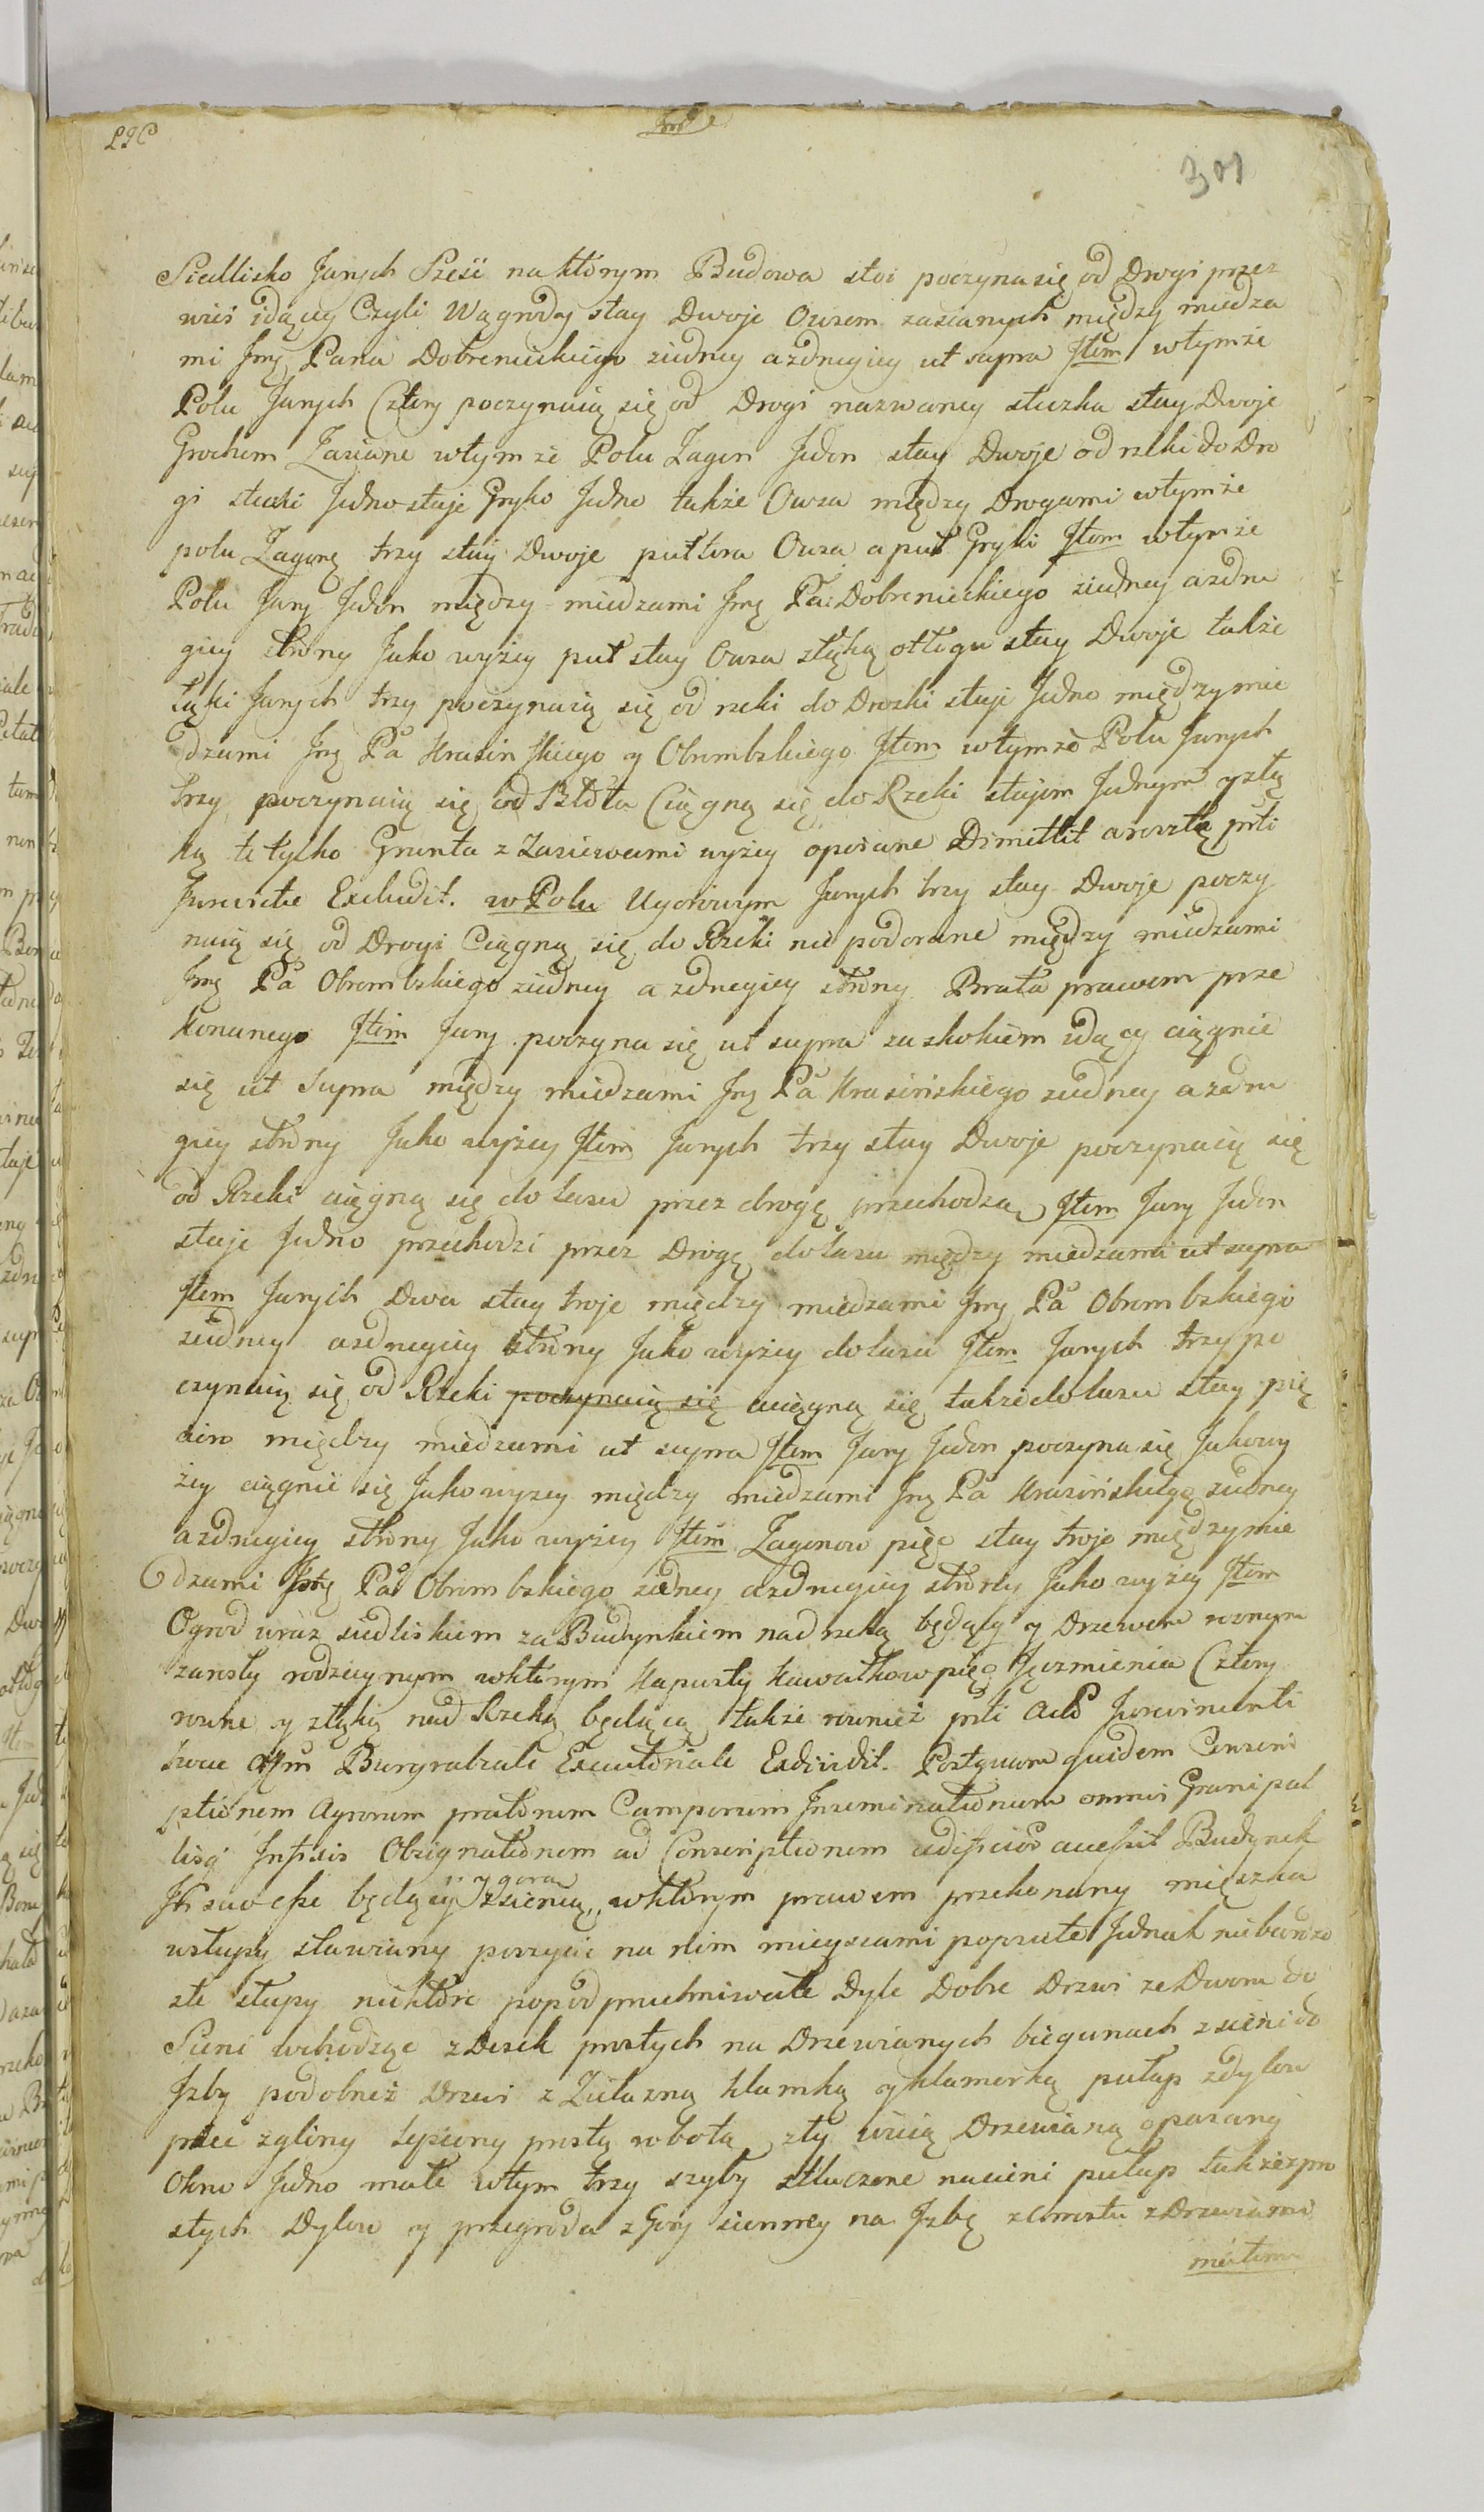 301
Siedlisko Janych Sześć na którym Budowa stoi poczyna się od Drogi przez
wieś idącey Czyli Wągrody stay Dwoje Owsem zasianych między miedza
mi Jmę Pana Dobrenieckiego ziedney azdrugiey ut supra Jtem wtymże
Polu Janych Cztery poczynaią się od Drogi nazwaney stuzka stay Dwoje
Grochem Zasiane wtymże Polu Zagon Jeden stay Dwoje od rzeki do Dro
gi stuzki Jedno staje Gryko Jedno także Owsa między Drogami wtymże
polu Zagonę trzy stay Dwoje puttora Owsa a put Gryki Jtem wtymże
Polu Jany Jeden między miedzami Jmę Pa Dobrenieckiego ziedney azdru
giey strony Jako wyżey put stay Owsa złąką otłogu stay Dwoje także
Łąki Janych trzy poczynaią się od rzeki do Drozki staje Jedno między mie
dzami Jmę Pa Krasińskiego y Obrembskiego Jtem wtymże Polu Janych
trzy poczynaią się od Błota Ciągną się do Rzeki stajem Jednym yzłą
ką te tylko Grunta z Zasiewami wyżey opisane Dimittit aresztę prti
Juravitae Excludit. w Polu Ugorowym Janych trzy stay Dwoje poczy
naią się od Drogi Ciągną się do Rzeki nie podorane między miedzami
Jmę Pa Obrembskiego ziedney a zdrugiey strony Brata prawem prze
konanego Jtem Jany poczyna się ut supra zaskokiem idący ciągnie
się ut Supra między miedzami Jmę Pa Krasińskiego ziedney a zdru
giey strony Jako wyżey Jtem Janych trzy stay Dwoje poczynaią się
od Rzeki ciągną się do lasu przez drogę przechodzą Jtem Jany Jeden
staje Jedno przechodzi przez Drogę do lasu między miedzami ut supra
Jtem Janych Dwa stay troje między miedzami Jmę Pa Obrembskiego
ziedney azdrugiey strony Jako wyżey do lasu Jtem Janych trzy po
czynaią się od Rzeki poczynaią się ciągną się także do lasu stay pię
cioro między miedzami ut supra Jtem Jany Jeden poczyna się Jakowy
żey ciągnie się Jako wyżey między miedzami Jmę Pa Krasińskiego ziedney
azdrugiey strony Jako wyżey Jtem Zagonow pięć stay troje między mie
dzami Jmę Pa Obrembskiego ziedney azdrugiey strony Jako wyżey Jtem
Ogrod wraz siedliskiem za Budynkiem nad rzeką będący y Drzewem roznym
zarosły rodzaynym wktórym Kapusty kawałkow pięć Jęczmienia Cztery
rowne y złąką nad Rzeką będącą także rownież prti Actd Juravimenti
suae Burgrabiale Executoriale Exdividit. Postquam quidem Conscri
ptionem Agrorum pratorum Camporum Jnseminationum omnis Grani pal
lisq Jnfixis Obsignationem ad Conscriptionem aedificior accessit Budynek
w esse będący zsienią „y gora„ wktórym prawem przekonany mięszka
wstupy stawiany poszycie na nim mieyscami popsute Jednak nie bardzo
złe stupy niektóre popodpruchniwałe Dyle Dobre Drzwi ze Dworu do
Sieni wchodząc z Desek prostych na Drzewianych biegunach zsieni do
Jzby podobnież Drzwi z Żelazną klamką yklamerką pułap zdylow
piec zgliny lepiony prostą robotą zły wicią Drzewianą opasany
Okno Jedno małe wtym trzy szyby stłuczone nasieni pułap także pro
stych Dylow y przegroda z Gory sienney na Jzbę z Chrostu z Drzewiami